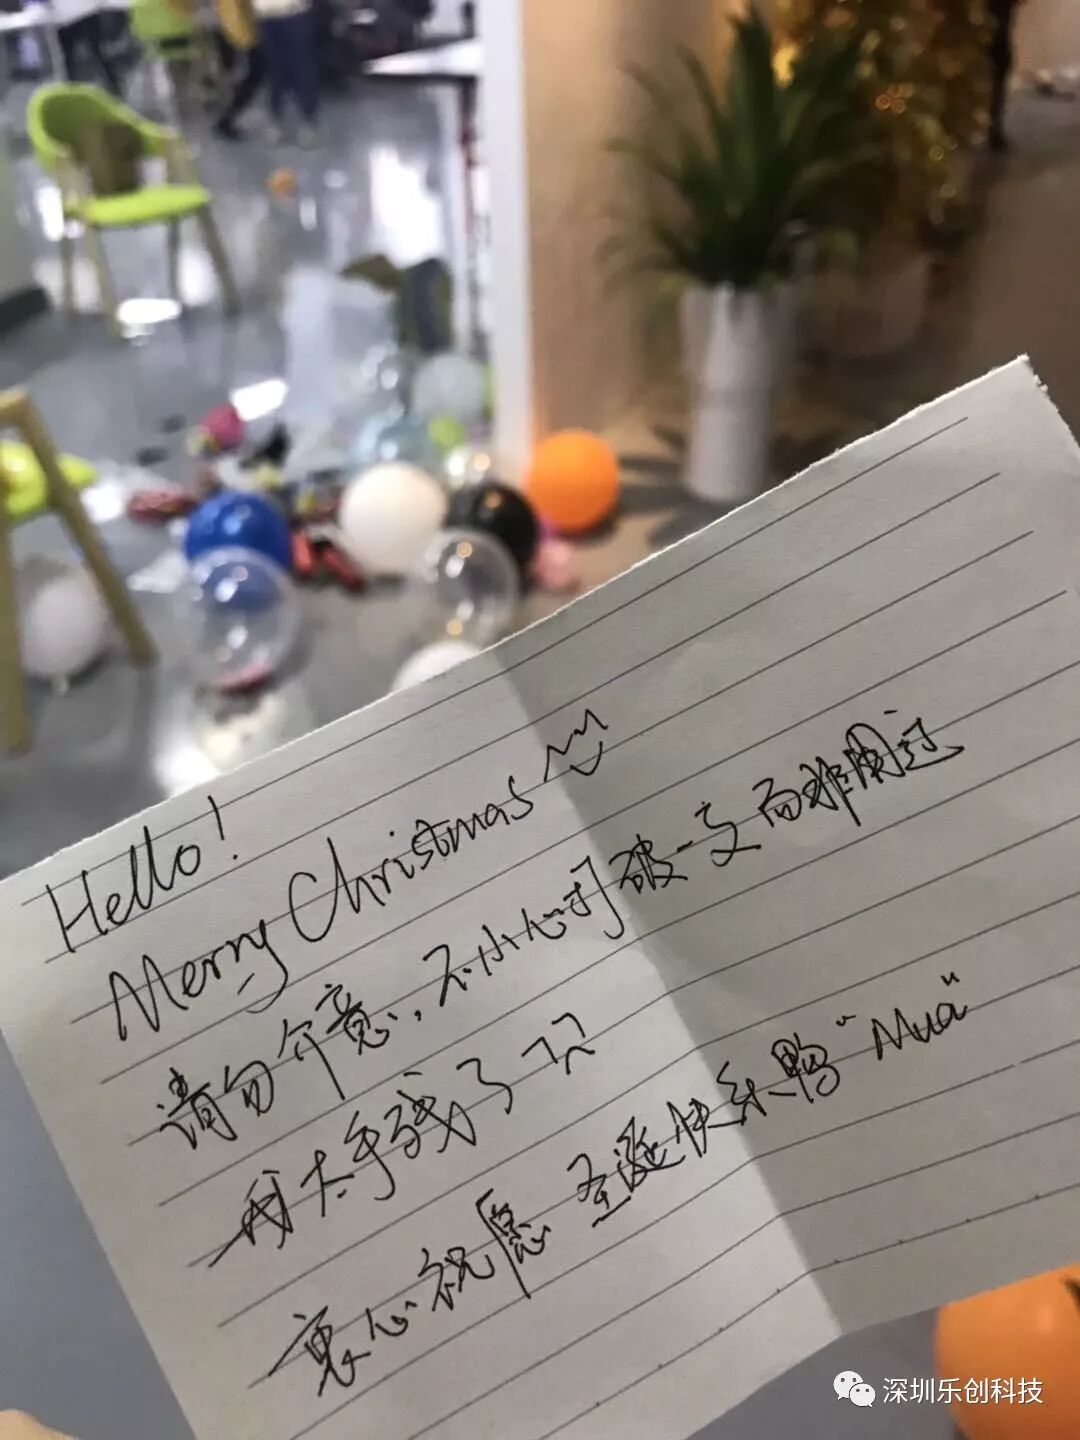 Hello!
Merry Christmas
请勿介意,不小心打破一支而非用过
我太手残了 哭
衷心祝愿 圣诞快乐鸭"Mua"
深圳乐创科技